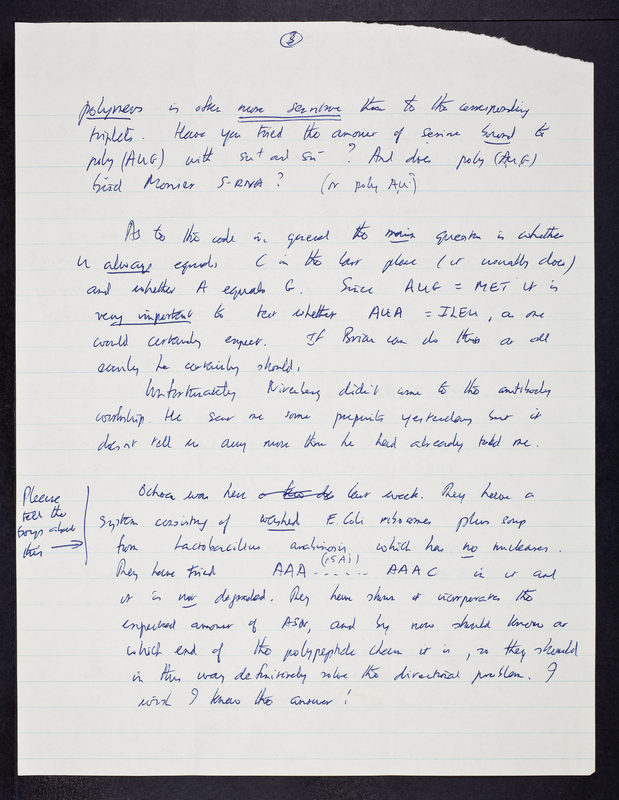 3
polymers is often more sensitive than to the corresponding
triplets. Have you tried the amount of serine bound to
poly (AUG) with su+ and su- ? And does poly (AUG)
bind Monier S-RNA ? (or poly AU?)
As to the code in general the main question is whether
U always equals C in the last place (it usually does)
and whether A equals G. Since AUG = MET it is
very important to test whether AUA = ILEU, as one
would certainly expect. If Brian can do this at all
easily he certainly should.
Unfortunately Nirenberg didn't come to the antibody
workshop. He sent me some preprints yesterday but it
doesn't tell us any more than he had already told me.
Please
tell the
boys about
this →
Ochoa was here last week. They have a
system consisting of washed E. Coli ribosomes plus soup
from Lactobacillus arabinosis which has no nucleases.
(15A's)
They have tried AAA ...... AAAC in it and
it is not degraded. They have shown it incorporates the
expected amount of ASN, and by now should know at
which end of the polypeptide chain it is, so they should
in this way definitively solve the directional problem. I
wish I knew the answer!